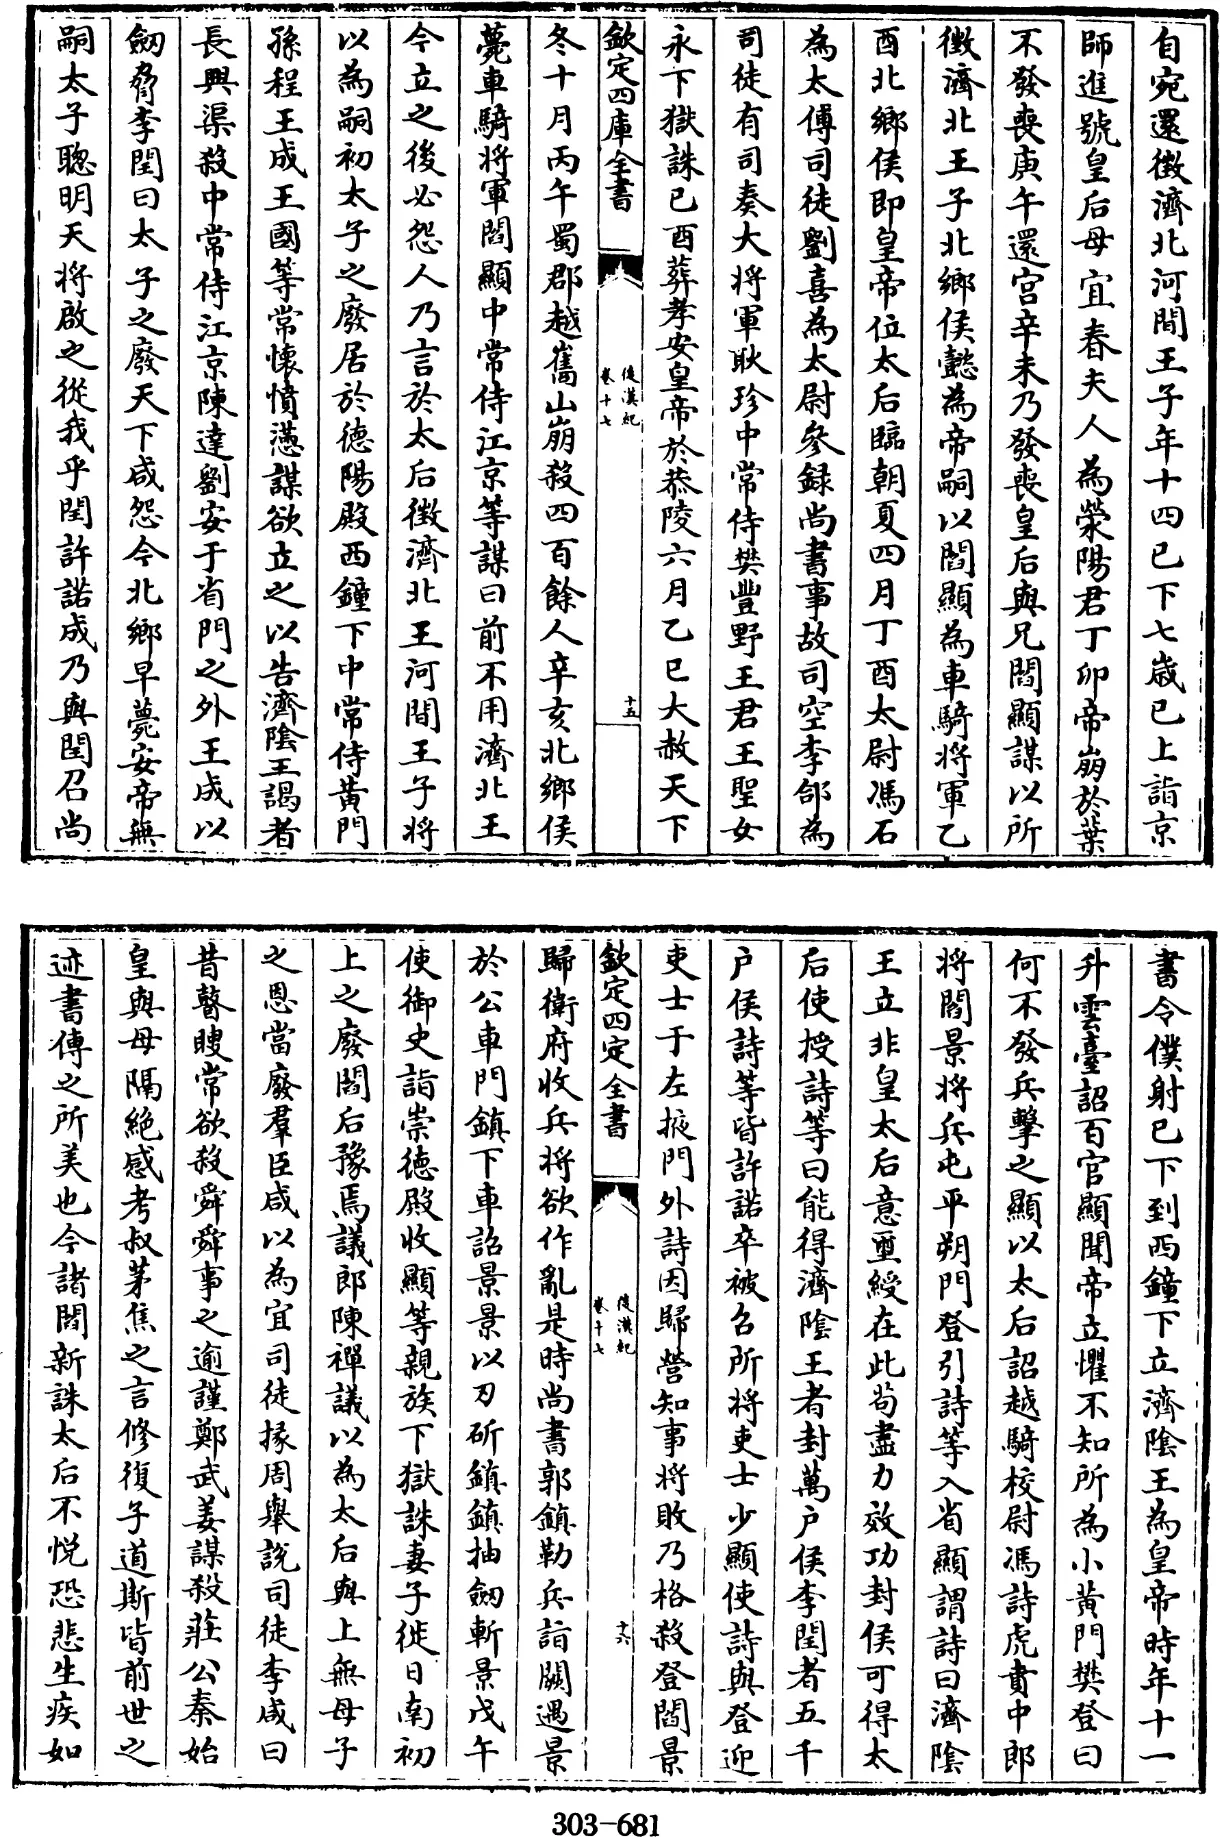 自宛還徵濟北河間王子年十四已下七歲已上詣京
師進號皇后母宜春夫人為滎陽君丁卯帝崩於葉
不發喪庚午還宮辛未乃發喪皇后與兄閻顯謀以所
徵濟北王子北鄉侯懿為帝嗣以閻顯為車騎將軍乙
酉北鄉侯即皇帝位太后臨朝夏四月丁酉太尉馮石
為太傅司徒劉喜為太尉參錄尚書事故司空李郃為
司徒有司奏大將軍耿珍中常侍樊豐野王君王聖女
永下獄誅已酉葬孝安皇帝於恭陵六月乙巳大赦天下
欽定四庫全書
後漢紀
卷十七
十五
冬十月丙午蜀郡越巂山崩殺四百餘人辛亥北鄉侯
薨車騎將軍閻顯中常侍江京等謀曰前不用濟北王
今立之後必怨人乃言於太后徵濟北王河間王子將
以為嗣初太子之廢居於德陽殿西鐘下中常侍黃門
孫程王成王國等常懷憤懣謀欲立之以告濟陰王謁者
長興渠殺中常侍江京陳達劉安于省門之外王成以
劒脅李閏曰太子之廢天下咸怨今北鄉早薨安帝無
嗣太子聰明天將啟之從我乎閏許諾成乃與閏召尚
書令僕射已下到西鐘下立濟陰王為皇帝時年十一
升雲臺詔百官顯聞帝立懼不知所為小黃門樊登曰
何不發兵擊之顯以太后詔越騎校尉馮詩虎賁中郎
將閻景將兵屯平朔門登引詩等入省顯謂詩曰濟陰
王立非皇太后意璽綬在此茍盡力效功封侯可得太
后使授詩等曰能得濟陰王者封萬戶侯李閏者五千
戶侯詩等皆許諾卒被召所將吏士少顯使詩與登迎
吏士于左掖門外詩因歸營知事將敗乃格殺登閻景
欽定四定全書
後漢紀
卷十七
十六
歸衛府收兵將欲作亂是時尚書郭鎮勒兵詣闕遇景
於公車門鎮下車詔景景以刃斫鎮鎮抽劒斬景戊午
使御史詣崇德殿收顯等親族下獄誅妻子徙日南初
上之廢閻后豫焉議郎陳禪議以為太后與上無母子
之恩當廢羣臣咸以為宜司徒掾周舉說司徒李咸曰
昔瞽瞍常欲殺舜舜事之逾謹鄭武姜謀殺莊公秦始
皇與母隔絕感考叔茅焦之言修復子道斯皆前世之
迹書傳之所美也今諸閻新誅太后不悅恐悲生疾如
303-681